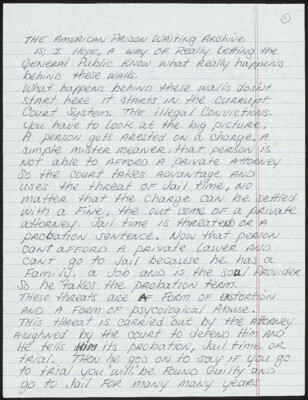 1
THE AMERICAN PRISON WRITING ARCHIVE
IS; I HOPE, A WAY OF REALLY LETTING THE
GENERAL PUBLIC KNOW WHAT REALLY HAPPENS
BEHIND THESE WALLS.
WHAT HAPPENS BEHIND THESE WALLS DOSN'T
START HERE IT STARTS IN THE CURRUPT
COURT SYSTEM. THE ILLEGAL CONVICTIONS.
YOU HAVE TO LOOK AT THE BIG PICTURE,
A PERSON GETS ARESTED ON A CHARGE A
SIMPLE MISTER MEANER, THAT PERSON IS
NOT ABLE TO AFFORD A PRIVATE ATTORNEY
SO THE COURT TAKES ADVANTAGE AND
USES THE THREAT OF JAIL TIME, NO
MATTER THAT THE CHARGE CAN BE SETTLED
WITH A FINE, THE OUT COME OF A PRIVATE
ATTORNEY. JAIL TIME IS THREATEND OR A
PROBATION SENTENCE. NOW THAT PERSON
CAN'T AFFORD A PRIVATE LAWER AND
CAN'T GO TO JAIL BECAUSE HE HAS A
FAMILY, A JOB AND IS THE SOUL PROVIDER
SO HE TAKES THE PROBATION TERM.
THESE THREATS ARE A FORM OF EXTORTION
AND A FORM OF PSYCOLOGICAL ABUSE.
THIS THREAT IS CARRIED OUT BY THE ATTORNEY
ASIGHNED BY THE COURT TO DEFEND HIM AND
HE TELLS HIM ITS PROBATION, JAIL TIME OR
TRIAL. THEN HE GOS ON TO SAY IF YOU GO
TO TRIAL YOU WILL BE FOUND GUILTY AND
GO TO JAIL FOR MANY MANY YEARS